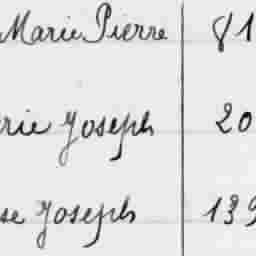 Marie Pierre 81
rie Joseph 20
se Joseph 139